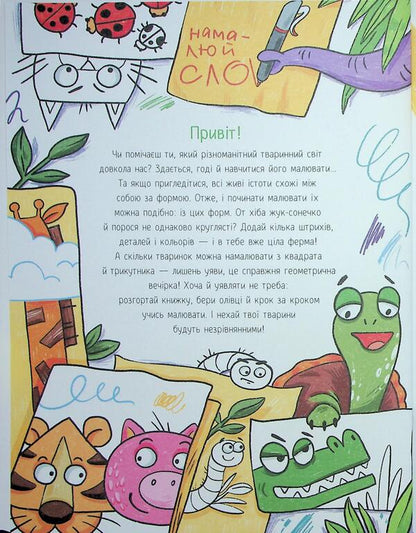 нама-
люй
СЛО
Привіт!
Чи помічаєш ти, який різноманітний тваринний світ
довкола нас? Здається, годі й навчитися його малювати...
Та якщо пригледітися, всі живі істоти схожі між
собою за формою. Отже, і починати малювати їх
можна подібно: із цих форм. От хіба жук-сонечко
й порося не однаково круглясті? Додай кілька штрихів,
деталей і кольорів — і в тебе вже ціла ферма!
А скільки тваринок можна намалювати з квадрата
й трикутника — лишень уяви, це справжня геометрична
вечірка! Хоча й уявляти не треба:
розгортай книжку, бери олівці й крок за кроком
учись малювати. І нехай твої тварини
будуть незрівнянними!